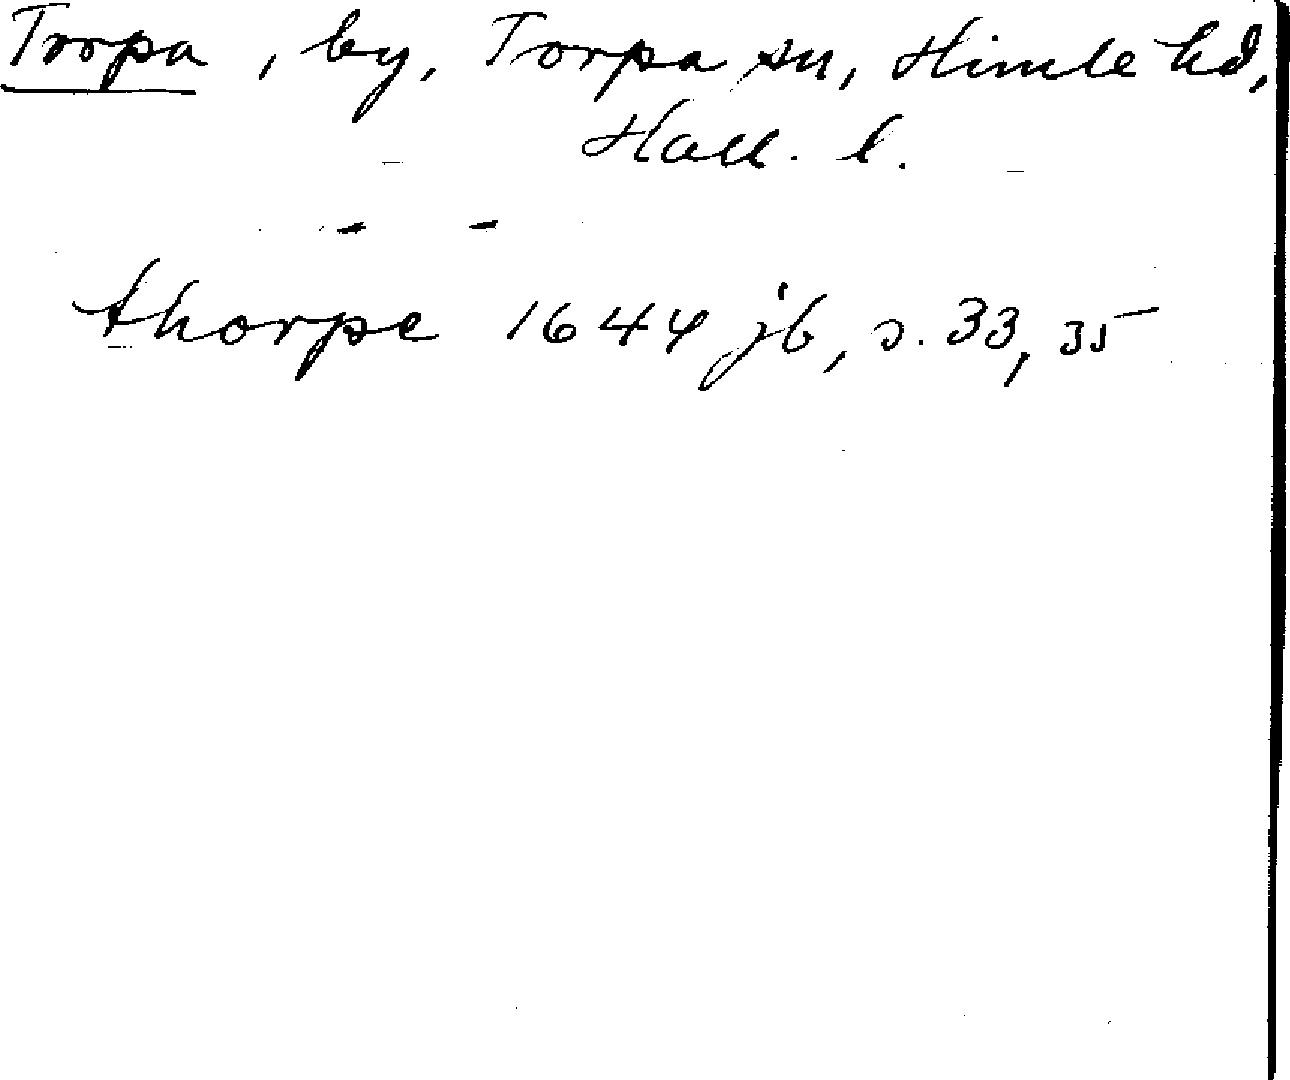 Torpa, by, Torpa sn, Himle hd,
Hall. l.
thorpe 1644 jb, s. 33, 35